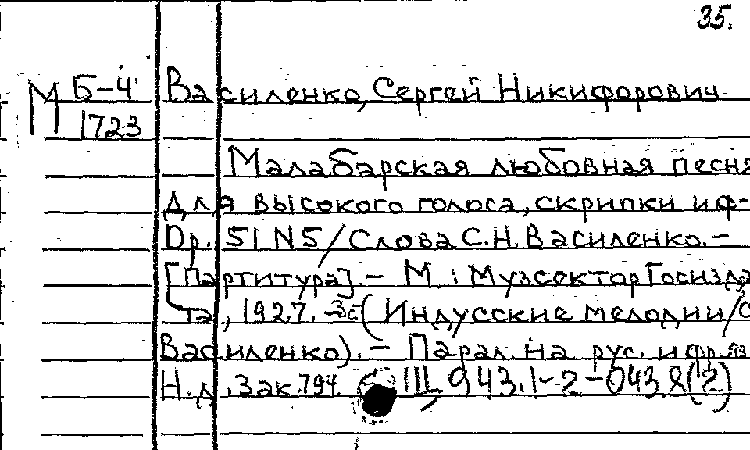 35.
М Б-4 Василенко, Сергей Никифорович
1723
Малабарская любовная песня
для высокого голоса, скрипки и ф-
Op. 51 N5/Слова С.Н. Василенко.-
[Партитура].- М.: Музсектор Госизда
та, 1927. (Индусские мелодии/С
Василенко).- Парал. на рус. и фр. яз
Н.д. Зак 794. Ш 943.1-2-043.8(2)